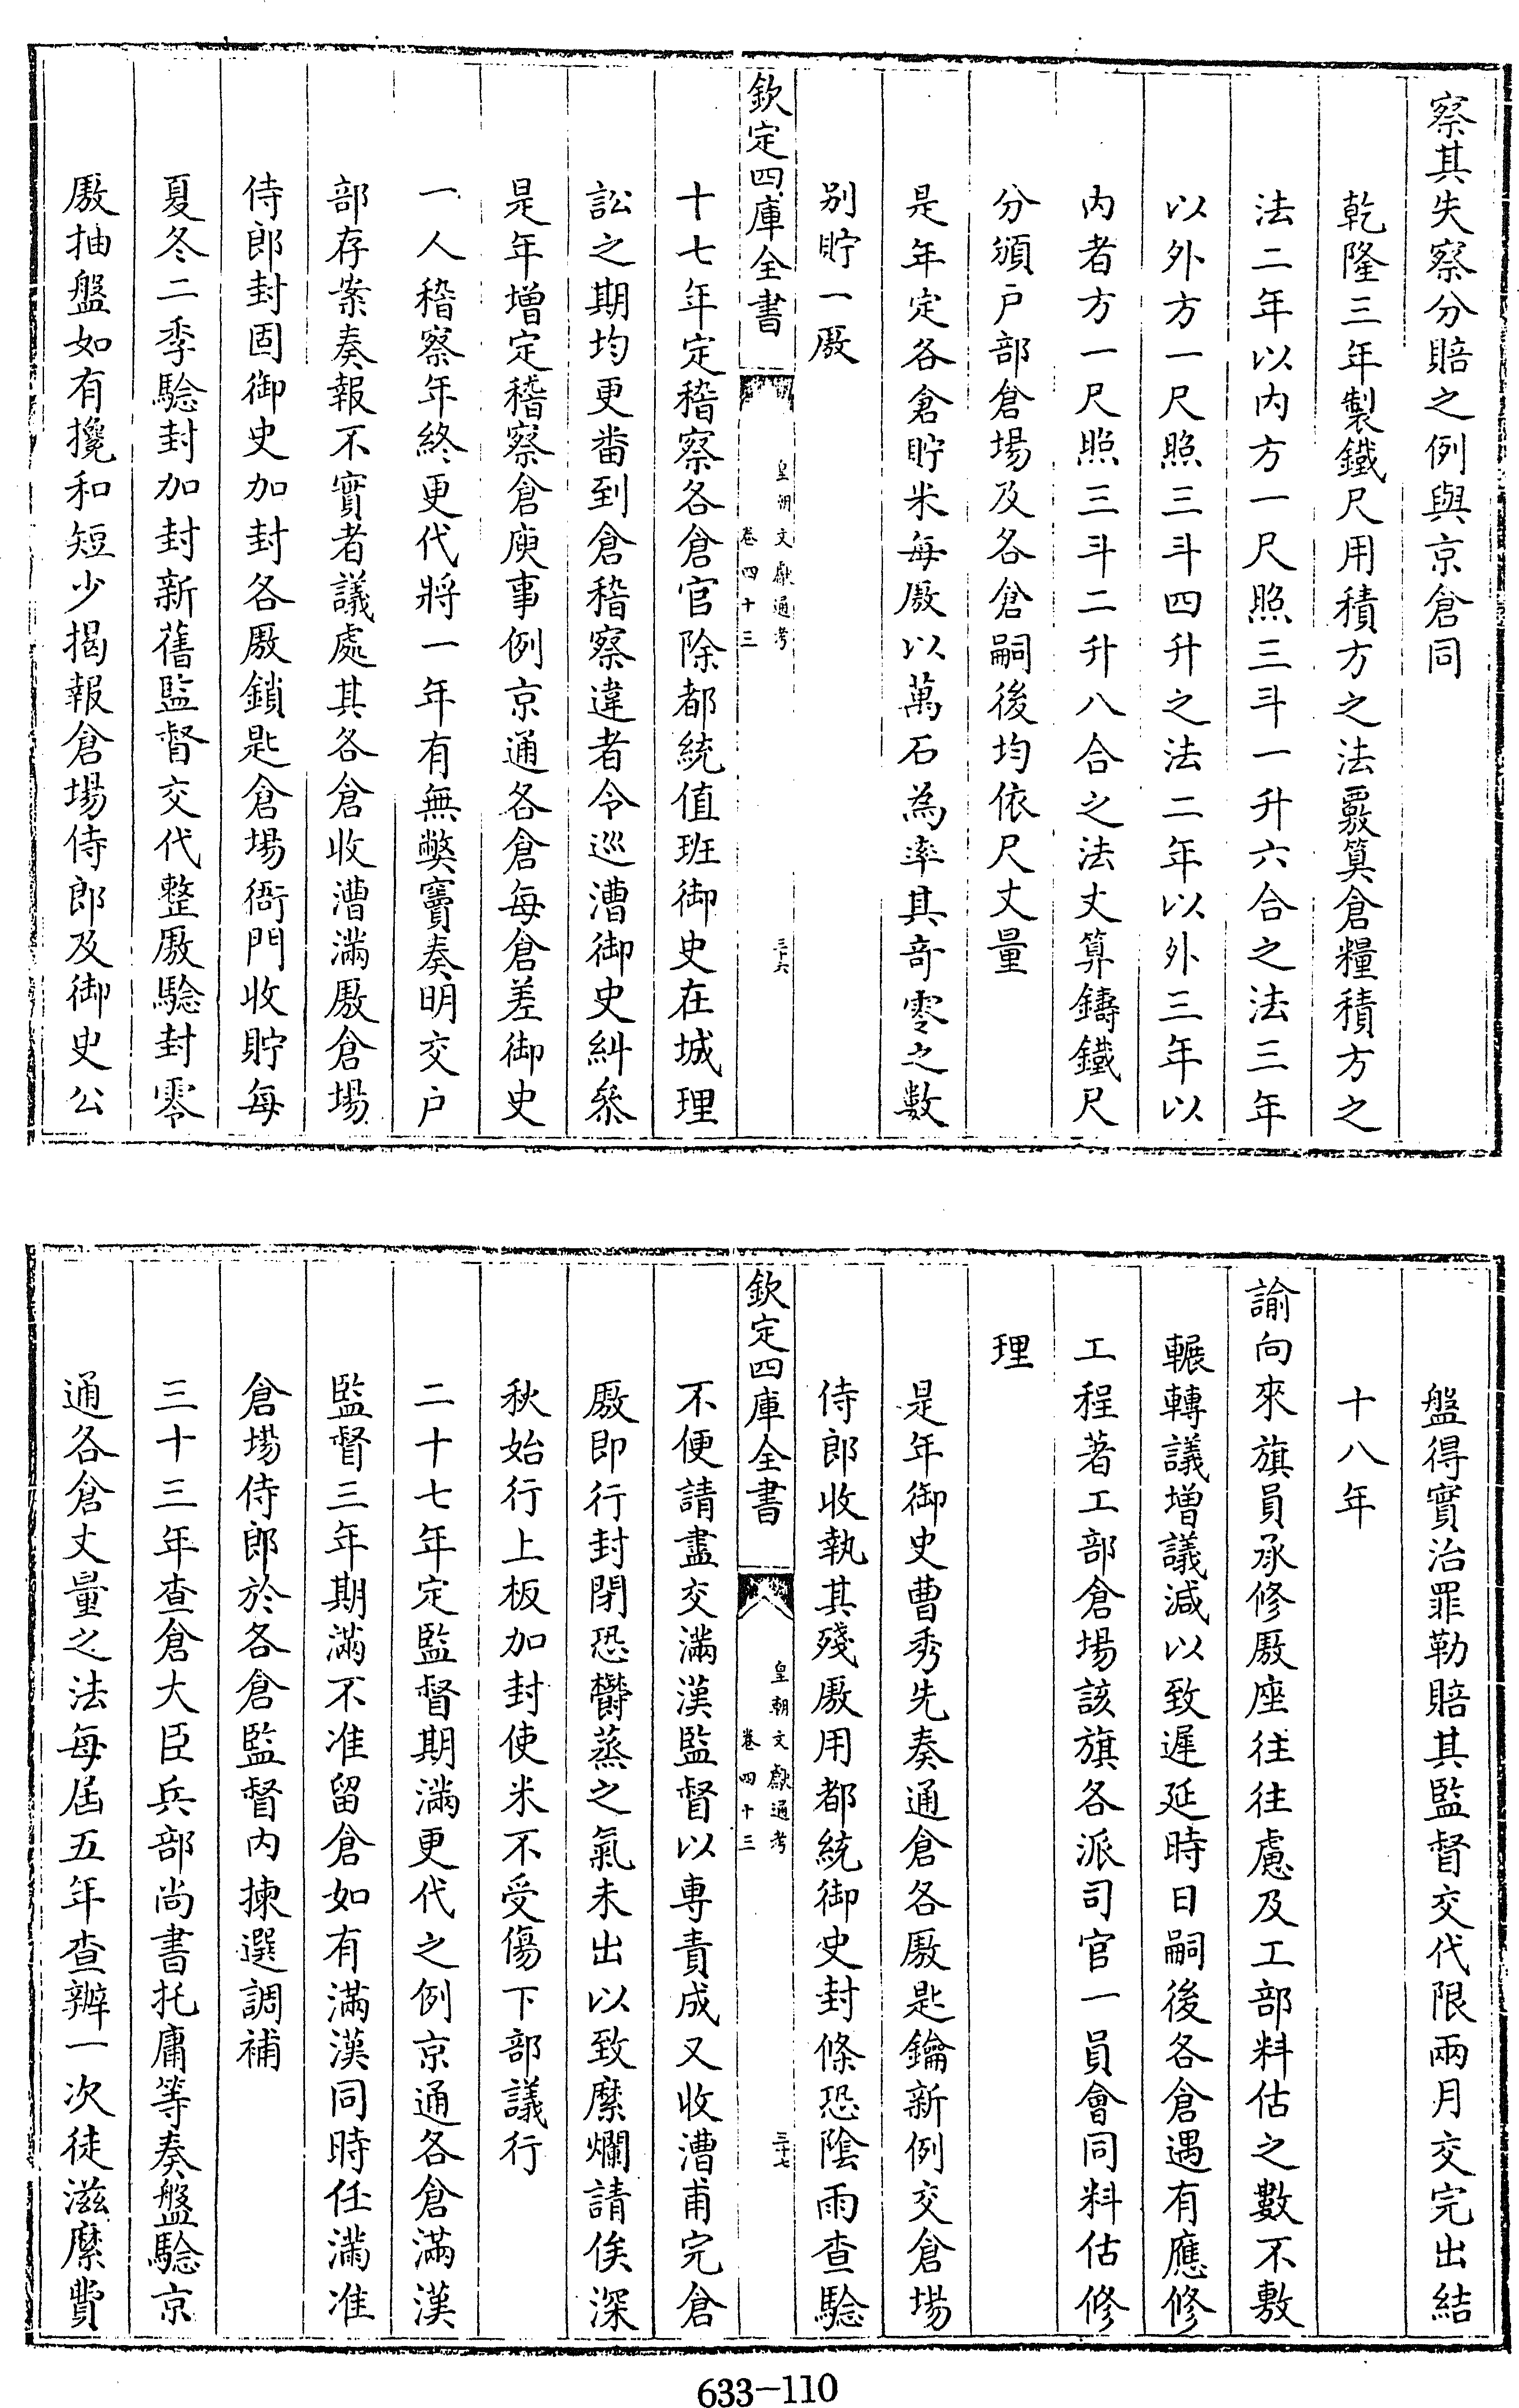 察其失察分賠之例與京倉同
乾隆三年製鐵尺用積方之法覈算倉糧積方之
法二年以内方一尺照三斗一升六合之法三年
以外方一尺照三斗四升之法二年以外三年以
内者方一尺照三斗二升八合之法丈算鑄鐵尺
分頒戸部倉場及各倉嗣後均依尺丈量
是年定各倉貯米每厫以萬石為率其奇零之數
别貯一厫
欽定四庫全書
皇朝文獻通考
卷四十三
三十六
十七年定稽察各倉官除都統值班御史在城理
訟之期均更畨到倉稽察違者令巡漕御史糾叅
是年增定稽察倉庾事例京通各倉每倉差御史
一人稽察年終更代將一年有無弊竇奏明交户
部存案奏報不實者議處其各倉收漕滿厫倉場
侍郎封固御史加封各厫鎖匙倉場衙門收貯每
夏冬二季驗封加封新舊監督交代整厫驗封零
厫抽盤如有攙和短少揭報倉場侍郎及御史公
盤得實治罪勒賠其監督交代限兩月交完出結
十八年
諭向來旗員承修厫座往往慮及工部料估之數不敷
輾轉議增議減以致遲延時日嗣後各倉遇有應修
工程著工部倉場該旗各派司官一員會同料估修
理
是年御史曹秀先奏通倉各厫匙鑰新例交倉場
侍郎收執其殘厫用都統御史封條恐陰雨查驗
欽定四庫全書
皇朝文獻通考
卷四十三
三十七
不便請盡交滿漢監督以専責成又收漕甫完倉
厫即行封閉恐鬱蒸之氣未出以致縻爛請俟深
秋始行上板加封使米不受傷下部議行
二十七年定監督期滿更代之例京通各倉滿漢
監督三年期滿不准留倉如有滿漢同時任滿准
倉場侍郎於各倉監督内揀選調補
三十三年查倉大臣兵部尚書托庸等奏盤驗京
通各倉丈量之法每屆五年查辦一次徒滋縻費
633-110